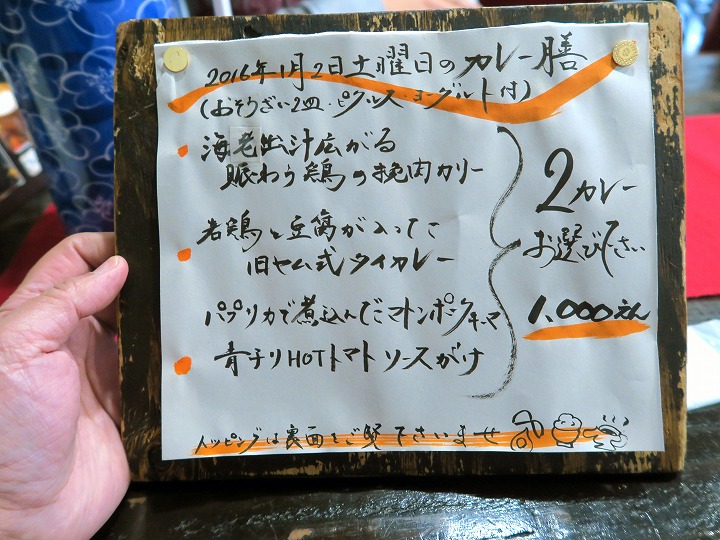 2016年1月2日土曜日のカレー膳
(おそうざい2皿・ピクルス・ヨーグルト付)
海老出汁広がる
賑わう鶏の挽肉カリー
若鶏と豆腐が入ってる
旧ヤム式タイカレー
パプリカで煮込んだマトンポークキーマ
青チリHOTトマトソースがけ
2カレー
お選び下さい
1,000えん
トッピングは裏面をご覧下さいませ